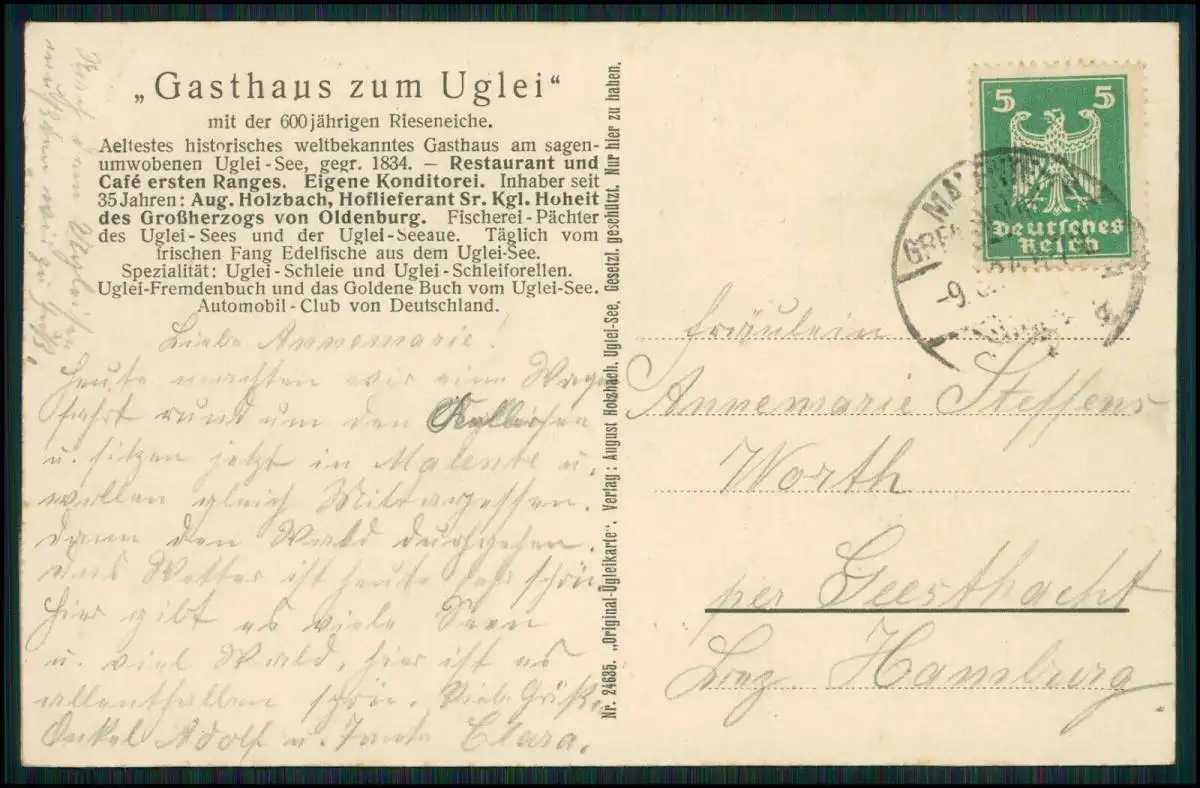 „Gasthaus zum Uglei“
mit der 600jährigen Rieseneiche.
Aeltestes historisches weltbekanntes Gasthaus am sagen-
umwobenen Uglei-See, gegr. 1834. – Restaurant und
Café ersten Ranges. Eigene Konditorei. Inhaber seit
35 Jahren: Aug. Holzbach, Hoflieferant Sr. Kgl. Hoheit
des Großherzogs von Oldenburg. Fischerei-Pächter
des Uglei-Sees und der Uglei-Seeaue. Täglich vom
frischen Fang Edelfische aus dem Uglei-See.
Spezialität: Uglei-Schleie und Uglei-Schleiforellen.
Uglei-Fremdenbuch und das Goldene Buch vom Uglei-See.
Automobil-Club von Deutschland.
Liebe Annemarie!
heute machten wir eine Wagen
fahrt rund um den Kellersee
u. sitzen jetzt in Malente u.
wollen gleich Mittagessen.
dann den Wald durchgehen.
das Wetter ist heute sehr schön
hier gibt es viele Seen
u. viel Wald, hier ist es
allenthalben schön. Viele Grüße
Onkel Adolf u. Tante Clara.
Nach dem Ugleisee
müssen wir zu Fuß.
Nr. 24635. „Original-Ugleikarte“. Verlag: August Holzbach, Uglei-See. Gesetzl. geschützt. Nur hier zu haben.
5 5
Deutsches
Reich
MALENTE
-9.
Fräulein
Annemarie Steffens
Worth
per Geesthacht
Bez. Hamburg.